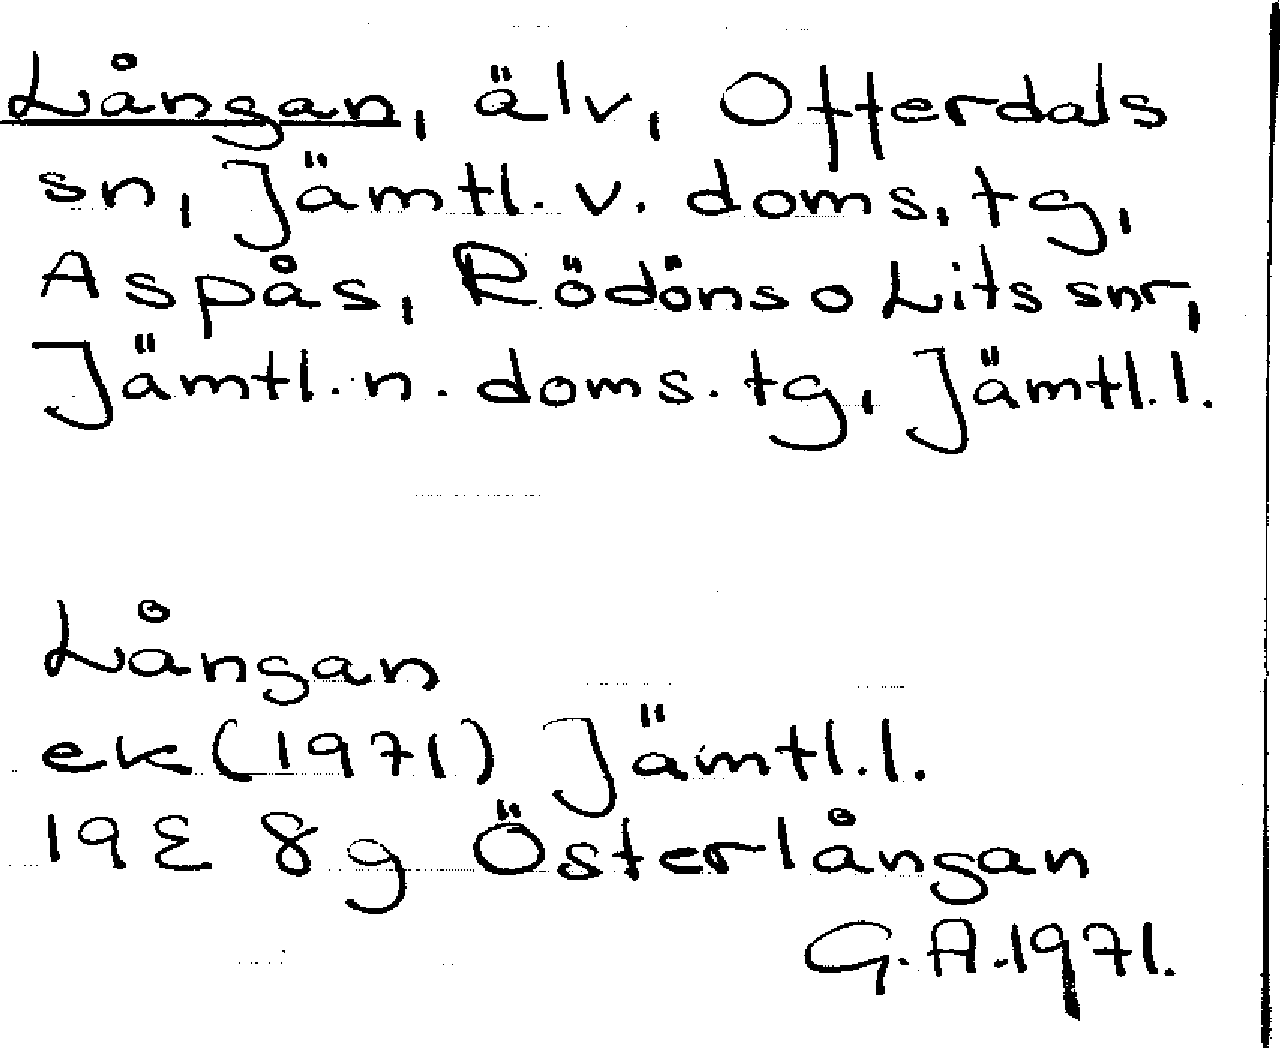 Långan, älv, Offerdals
sn, Jämtl. v. doms. tg,
Aspås, Rödöns o Lits snr,
Jämtl. n. doms. tg, Jämtl. l.
Långan
ek (1971) Jämtl. l.
19E 8g Österlångan
G. A. 1971.